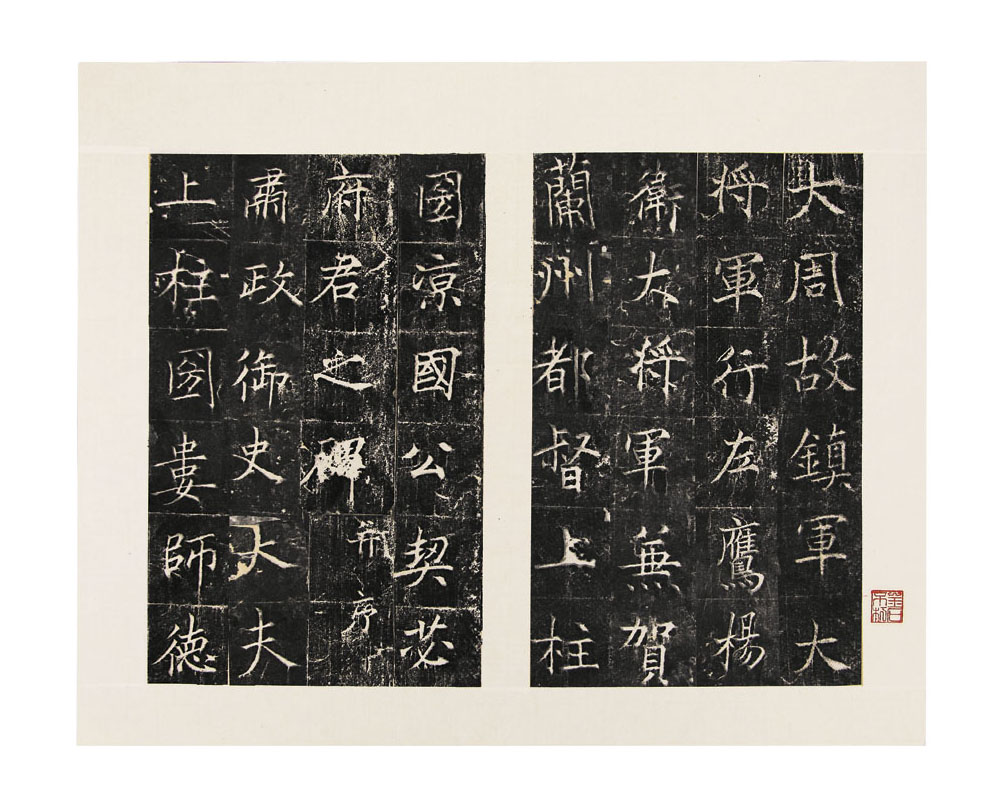 大周故鎮軍大
将軍行左鷹楊
衛大将軍兼賀
蘭州都督上柱
圀涼國公契苾
府君之碑并序
肅政御史大夫
上柱圀婁師德